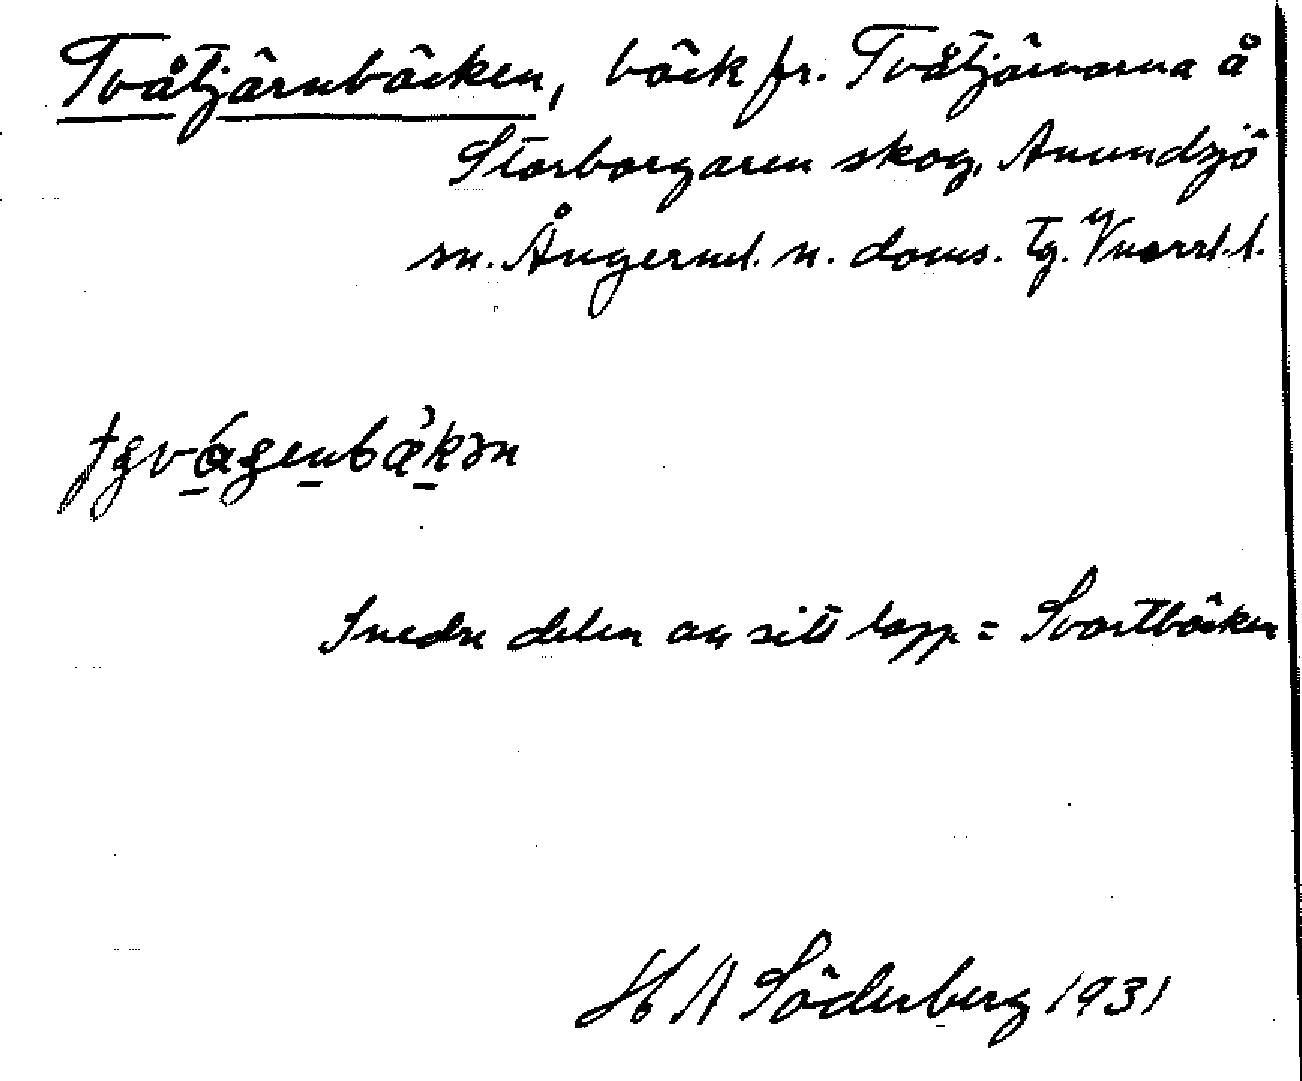 Tvåtjärnbäcken, bäck fr. Tvåtjärnarna å
Storborgaren skog, Anundsjö
sn. Ångerml. n. doms. Tg.
Nedre delen av sitt lopp = Svartbäcken
H A Söderberg 1931